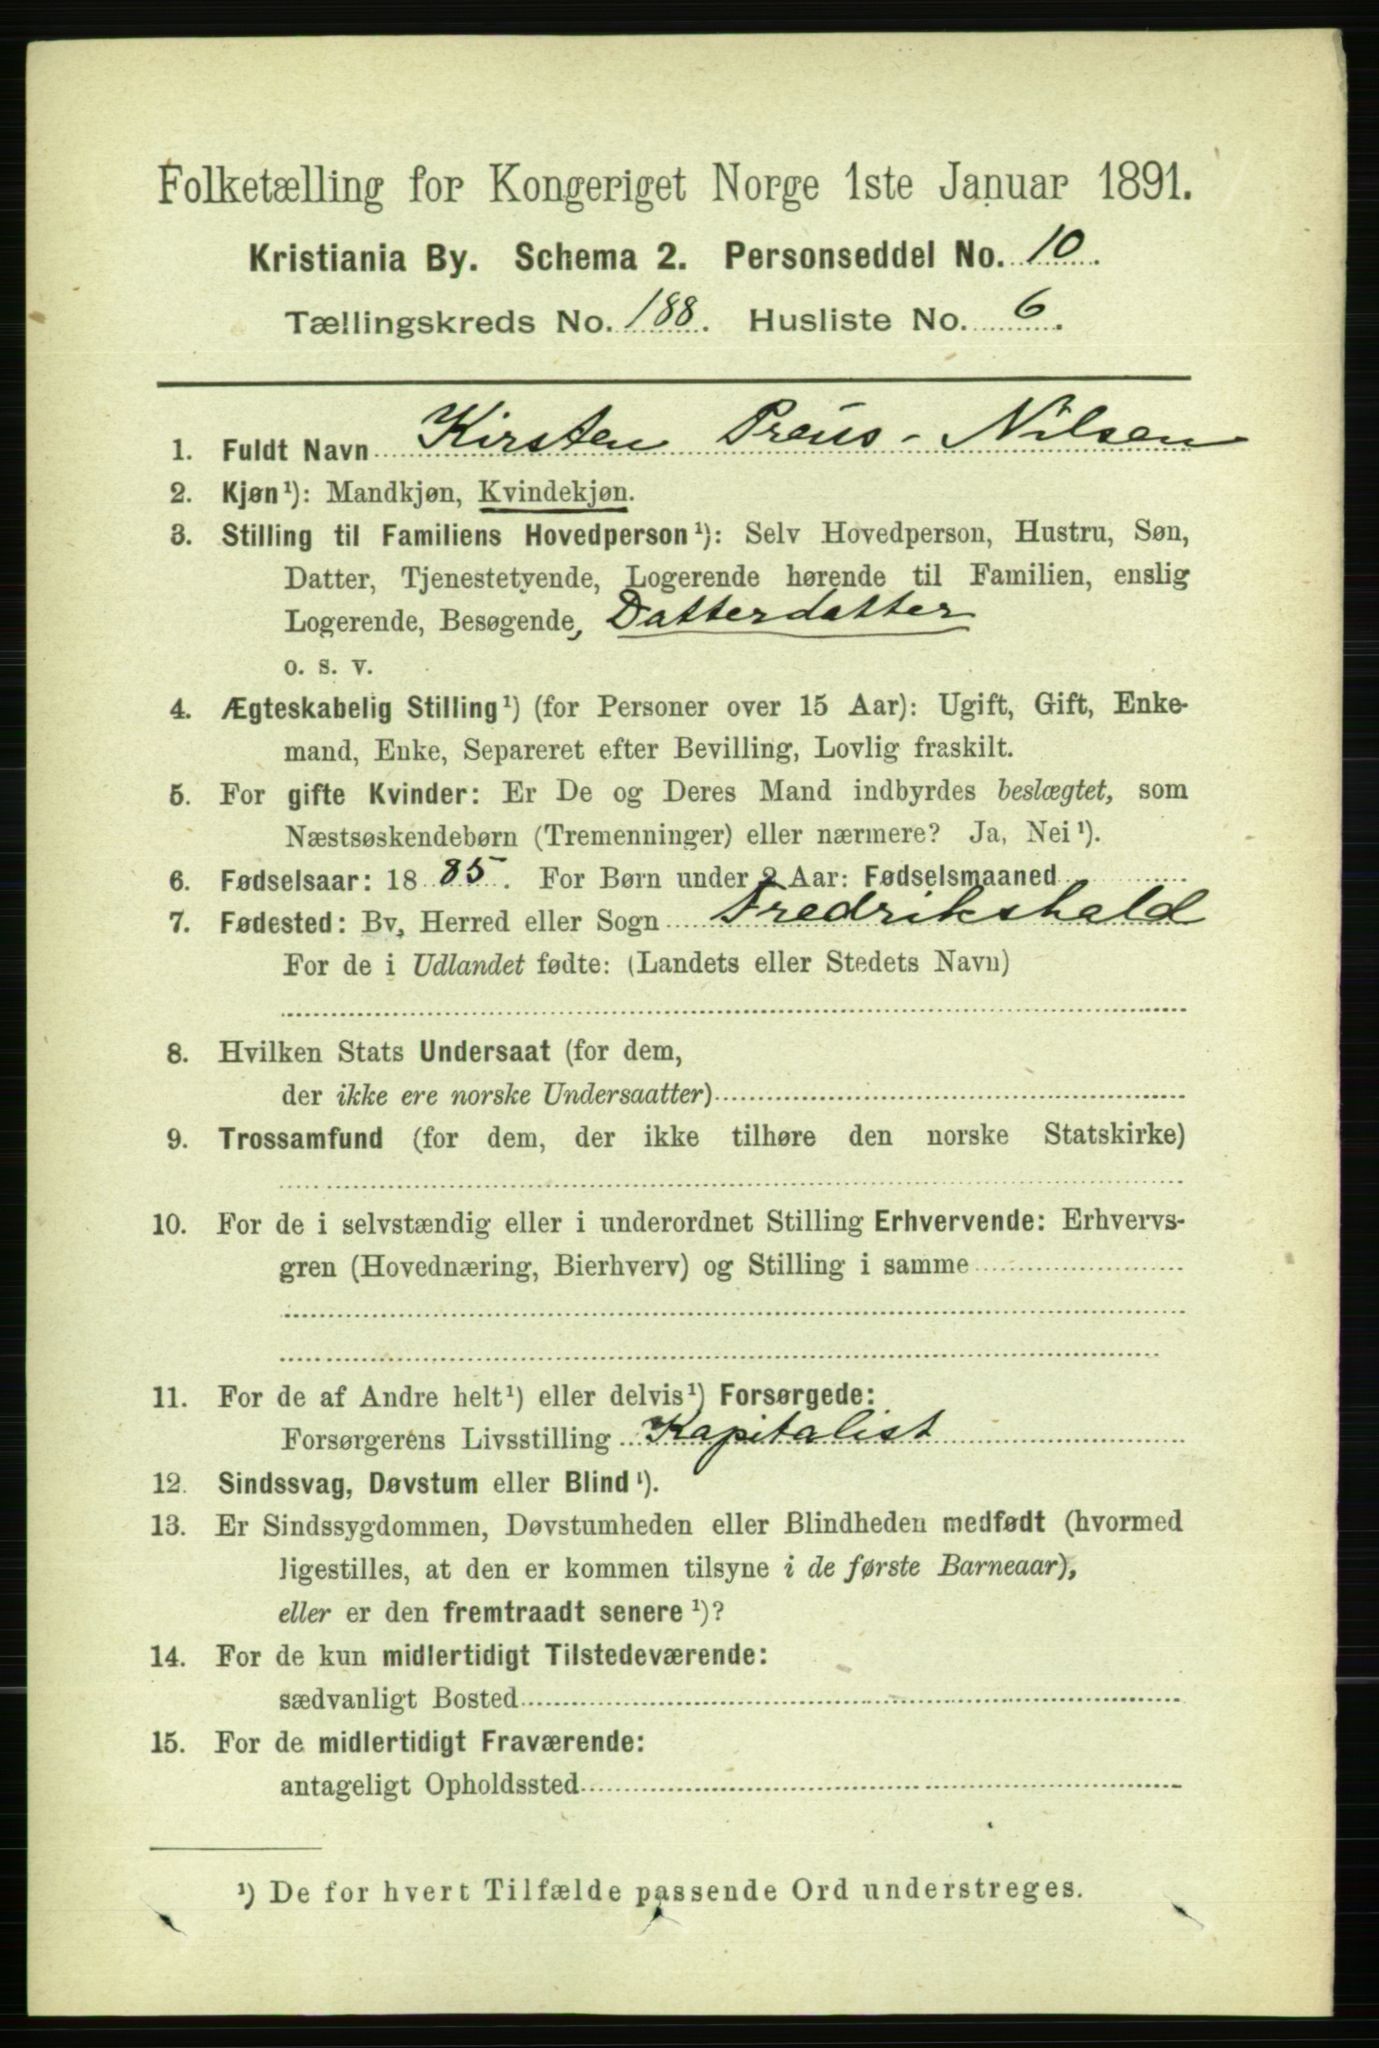 Folketælling for Kongeriget Norge 1ste Januar 1891.
Kristiania By. Schema 2. Personseddel No. 10.
Tællingskreds No. 188. Husliste No. 6.
1. Fuldt Navn Kirsten Preus-Nilsen
2. Kjøn¹): Mandkjøn, Kvindekjøn.
3. Stilling til Familiens Hovedperson¹): Selv Hovedperson, Hustru, Søn,
Datter, Tjenestetyende, Logerende hørende til Familien, enslig
Logerende, Besøgende, Datterdatter
o. s. v.
4. Ægteskabelig Stilling¹) (for Personer over 15 Aar): Ugift, Gift, Enke-
mand, Enke, Separeret efter Bevilling, Lovlig fraskilt.
5. For gifte Kvinder: Er De og Deres Mand indbyrdes beslægtet, som
Næstsøskendebørn (Tremenninger) eller nærmere? Ja, Nei¹).
6. Fødselsaar: 1885. For Børn under 2 Aar: Fødselsmaaned
7. Fødested: By, Herred eller Sogn Fredrikshald
For de i Udlandet fødte: (Landets eller Stedets Navn)
8. Hvilken Stats Undersaat (for dem,
der ikke ere norske Undersaatter)
9. Trossamfund (for dem, der ikke tilhøre den norske Statskirke)
10. For de i selvstændig eller i underordnet Stilling Erhvervende: Erhvervs-
gren (Hovednæring, Bierhverv) og Stilling i samme
11. For de af Andre helt¹) eller delvis¹) Forsørgede:
Forsørgerens Livsstilling Kapitalist
12. Sindssvag, Døvstum eller Blind¹).
13. Er Sindssygdommen, Døvstumheden eller Blindheden medfødt (hvormed
ligestilles, at den er kommen tilsyne i de første Barneaar),
eller er den fremtraadt senere¹)?
14. For de kun midlertidigt Tilstedeværende:
sædvanligt Bosted
15. For de midlertidigt Fraværende:
antageligt Opholdssted
¹) De for hvert Tilfælde passende Ord understreges.